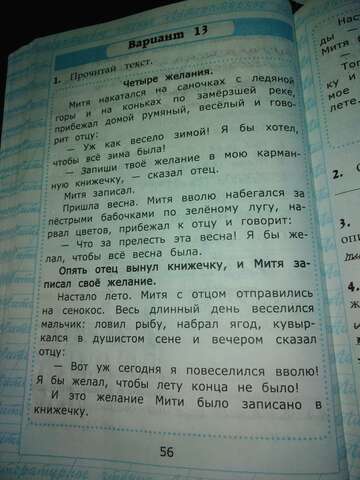 Вариант 13
1. Прочитай текст.
Четыре желания.
Митя накатался на саночках с ледяной
горы и на коньках по замёрзшей реке,
прибежал домой румяный, весёлый и гово-
рит отцу:
— Уж как весело зимой! Я бы хотел,
чтобы всё зима была!
— Запиши твоё желание в мою карман-
ную книжечку, — сказал отец.
Митя записал.
Пришла весна. Митя вволю набегался за
пёстрыми бабочками по зелёному лугу, на-
рвал цветов, прибежал к отцу и говорит:
— Что за прелесть эта весна! Я бы же-
лал, чтобы всё весна была.
Опять отец вынул книжечку, и Митя за-
писал своё желание.
Настало лето. Митя с отцом отправились
на сенокос. Весь длинный день веселился
мальчик: ловил рыбу, набрал ягод, кувыр-
кался в душистом сене и вечером сказал
отцу:
— Вот уж сегодня я повеселился вволю!
Я бы желал, чтобы лету конца не было!
И это желание Мити было записано в
книжечку.
56
ды
Наста
Митя
То
ку
мое
лете.
2.
3.
оп
4.